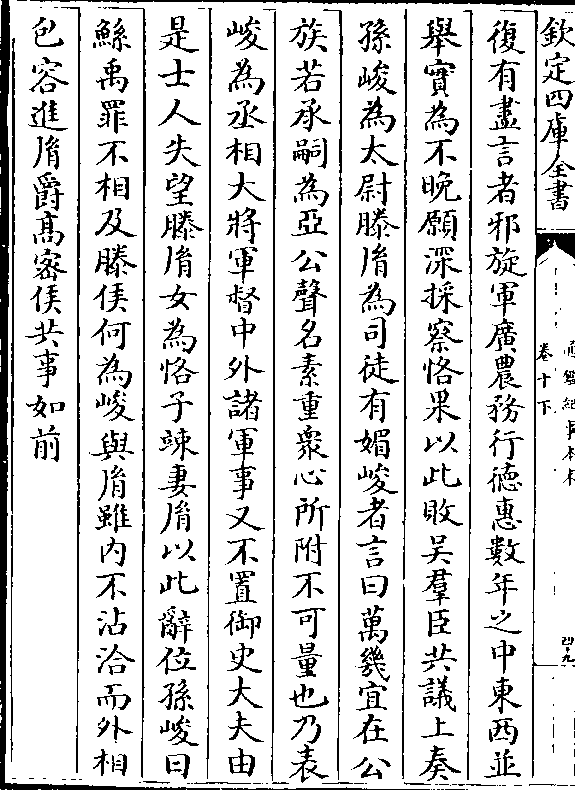 欽定四庫全書
卷十下
復有盡言者邪旋軍廣農務行徳惠數年之中東西並
舉實為不晚願深採察恪果以此敗吳羣臣共議上奏
孫峻為太尉滕胤為司徒有媚峻者言曰萬幾宜在公
族若承嗣為亞公聲名素重衆心所附不可量也乃表
峻為丞相大將軍督中外諸軍事又不置御史大夫由
是士人失望滕胤女為恪子竦妻胤以此辭位孫峻曰
鯀禹罪不相及滕侯何為峻與胤雖内不沾洽而外相
包容進胤爵髙密侯共事如前